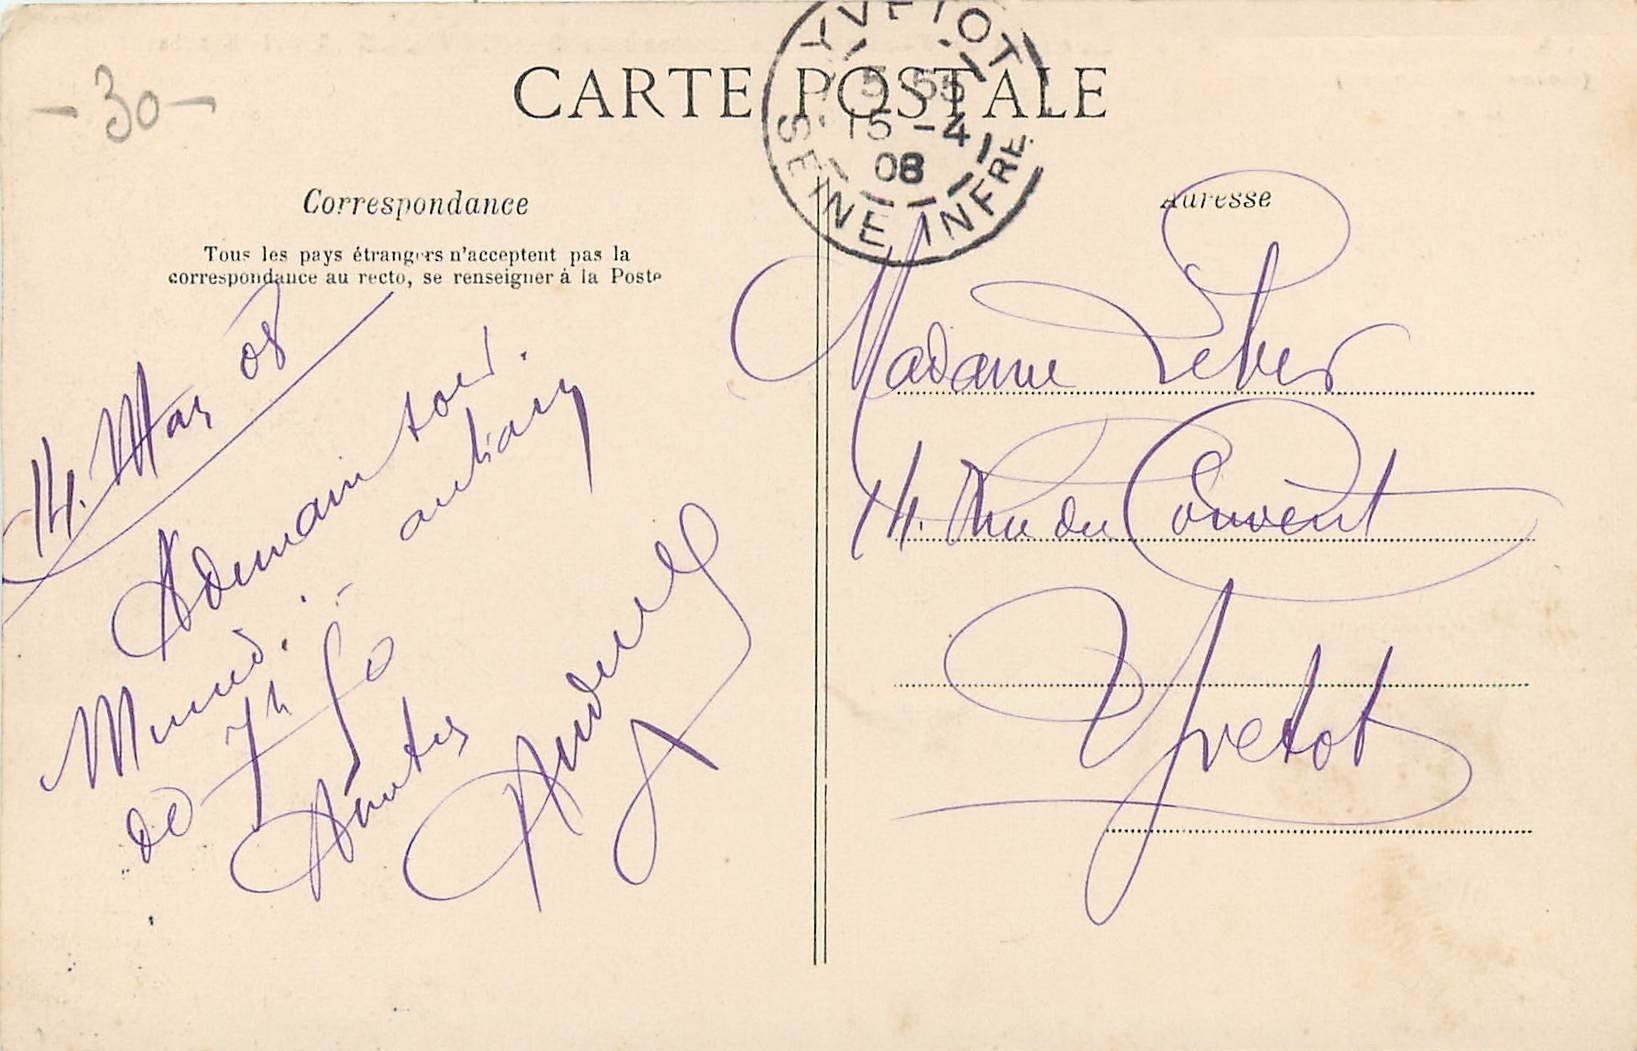 -30-
CARTE POSTALE
YVETOT
5 55
15 -4
08
SEINE INFRE
Correspondance
Tous les pays étrangers n'acceptent pas la
correspondance au recto, se renseigner à la Poste
Adresse
14. Mars 08
A demain soir.
de 7h 50
Madame
14. Rue du Couvent
Yvetot